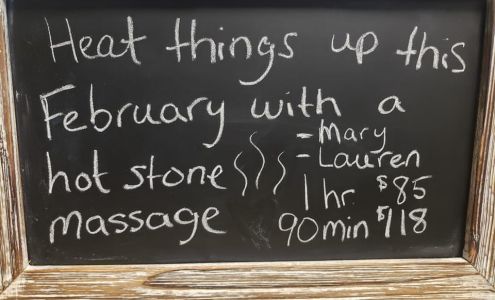 Heat things up this
February with a
hot stone
massage
- Mary
- Lauren
1 hr. $85
90min $118